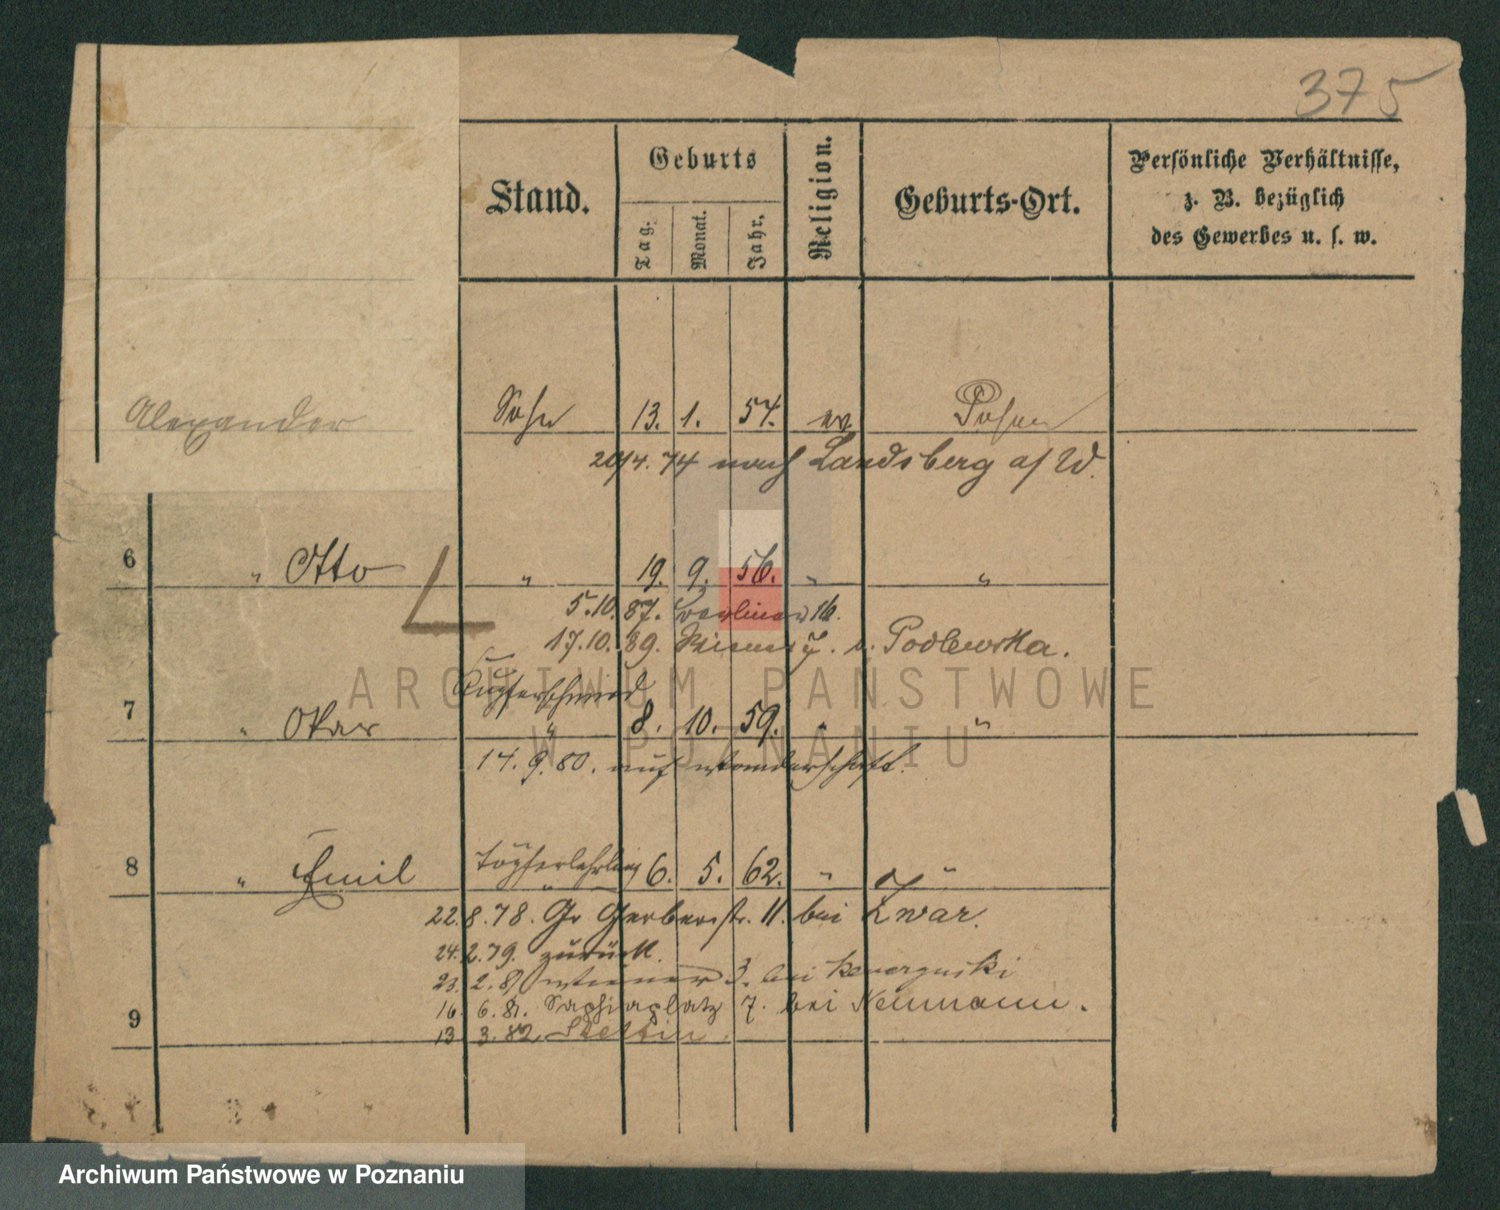 375
Stand.
Geburts
Tag.
Monat.
Jahr.
Religion.
Geburts-Ort.
Persönliche Verhältnisse,
z. B. bezüglich
des Gewerbes u. s. w.
Alexander Sohn 13. 1. 54. ev. Posen
20/4. 74 nach Landsberg a/W.
6 " Otto " 19. 9. 56. " "
5.10. 87. 16.
17.10. 89. b. Podlewska.
Kupferschmied
7 " Oskar " 8. 10. 59. " "
14. 9. 80. auf Wanderschaft.
8 " Emil Töpferlehrling 6. 5. 62. " "
22. 8. 78. Gr Gerberstr. 11. bei Zwar.
24. 2. 79. zurück.
23. 2. 81 3. bei
16. 6. 81. Saphiaplatz 7. bei Neumann.
9
13. 3. 82. Stettin.
ARCHIWUM PAŃSTWOWE
W POZNANIU
Archiwum Państwowe w Poznaniu